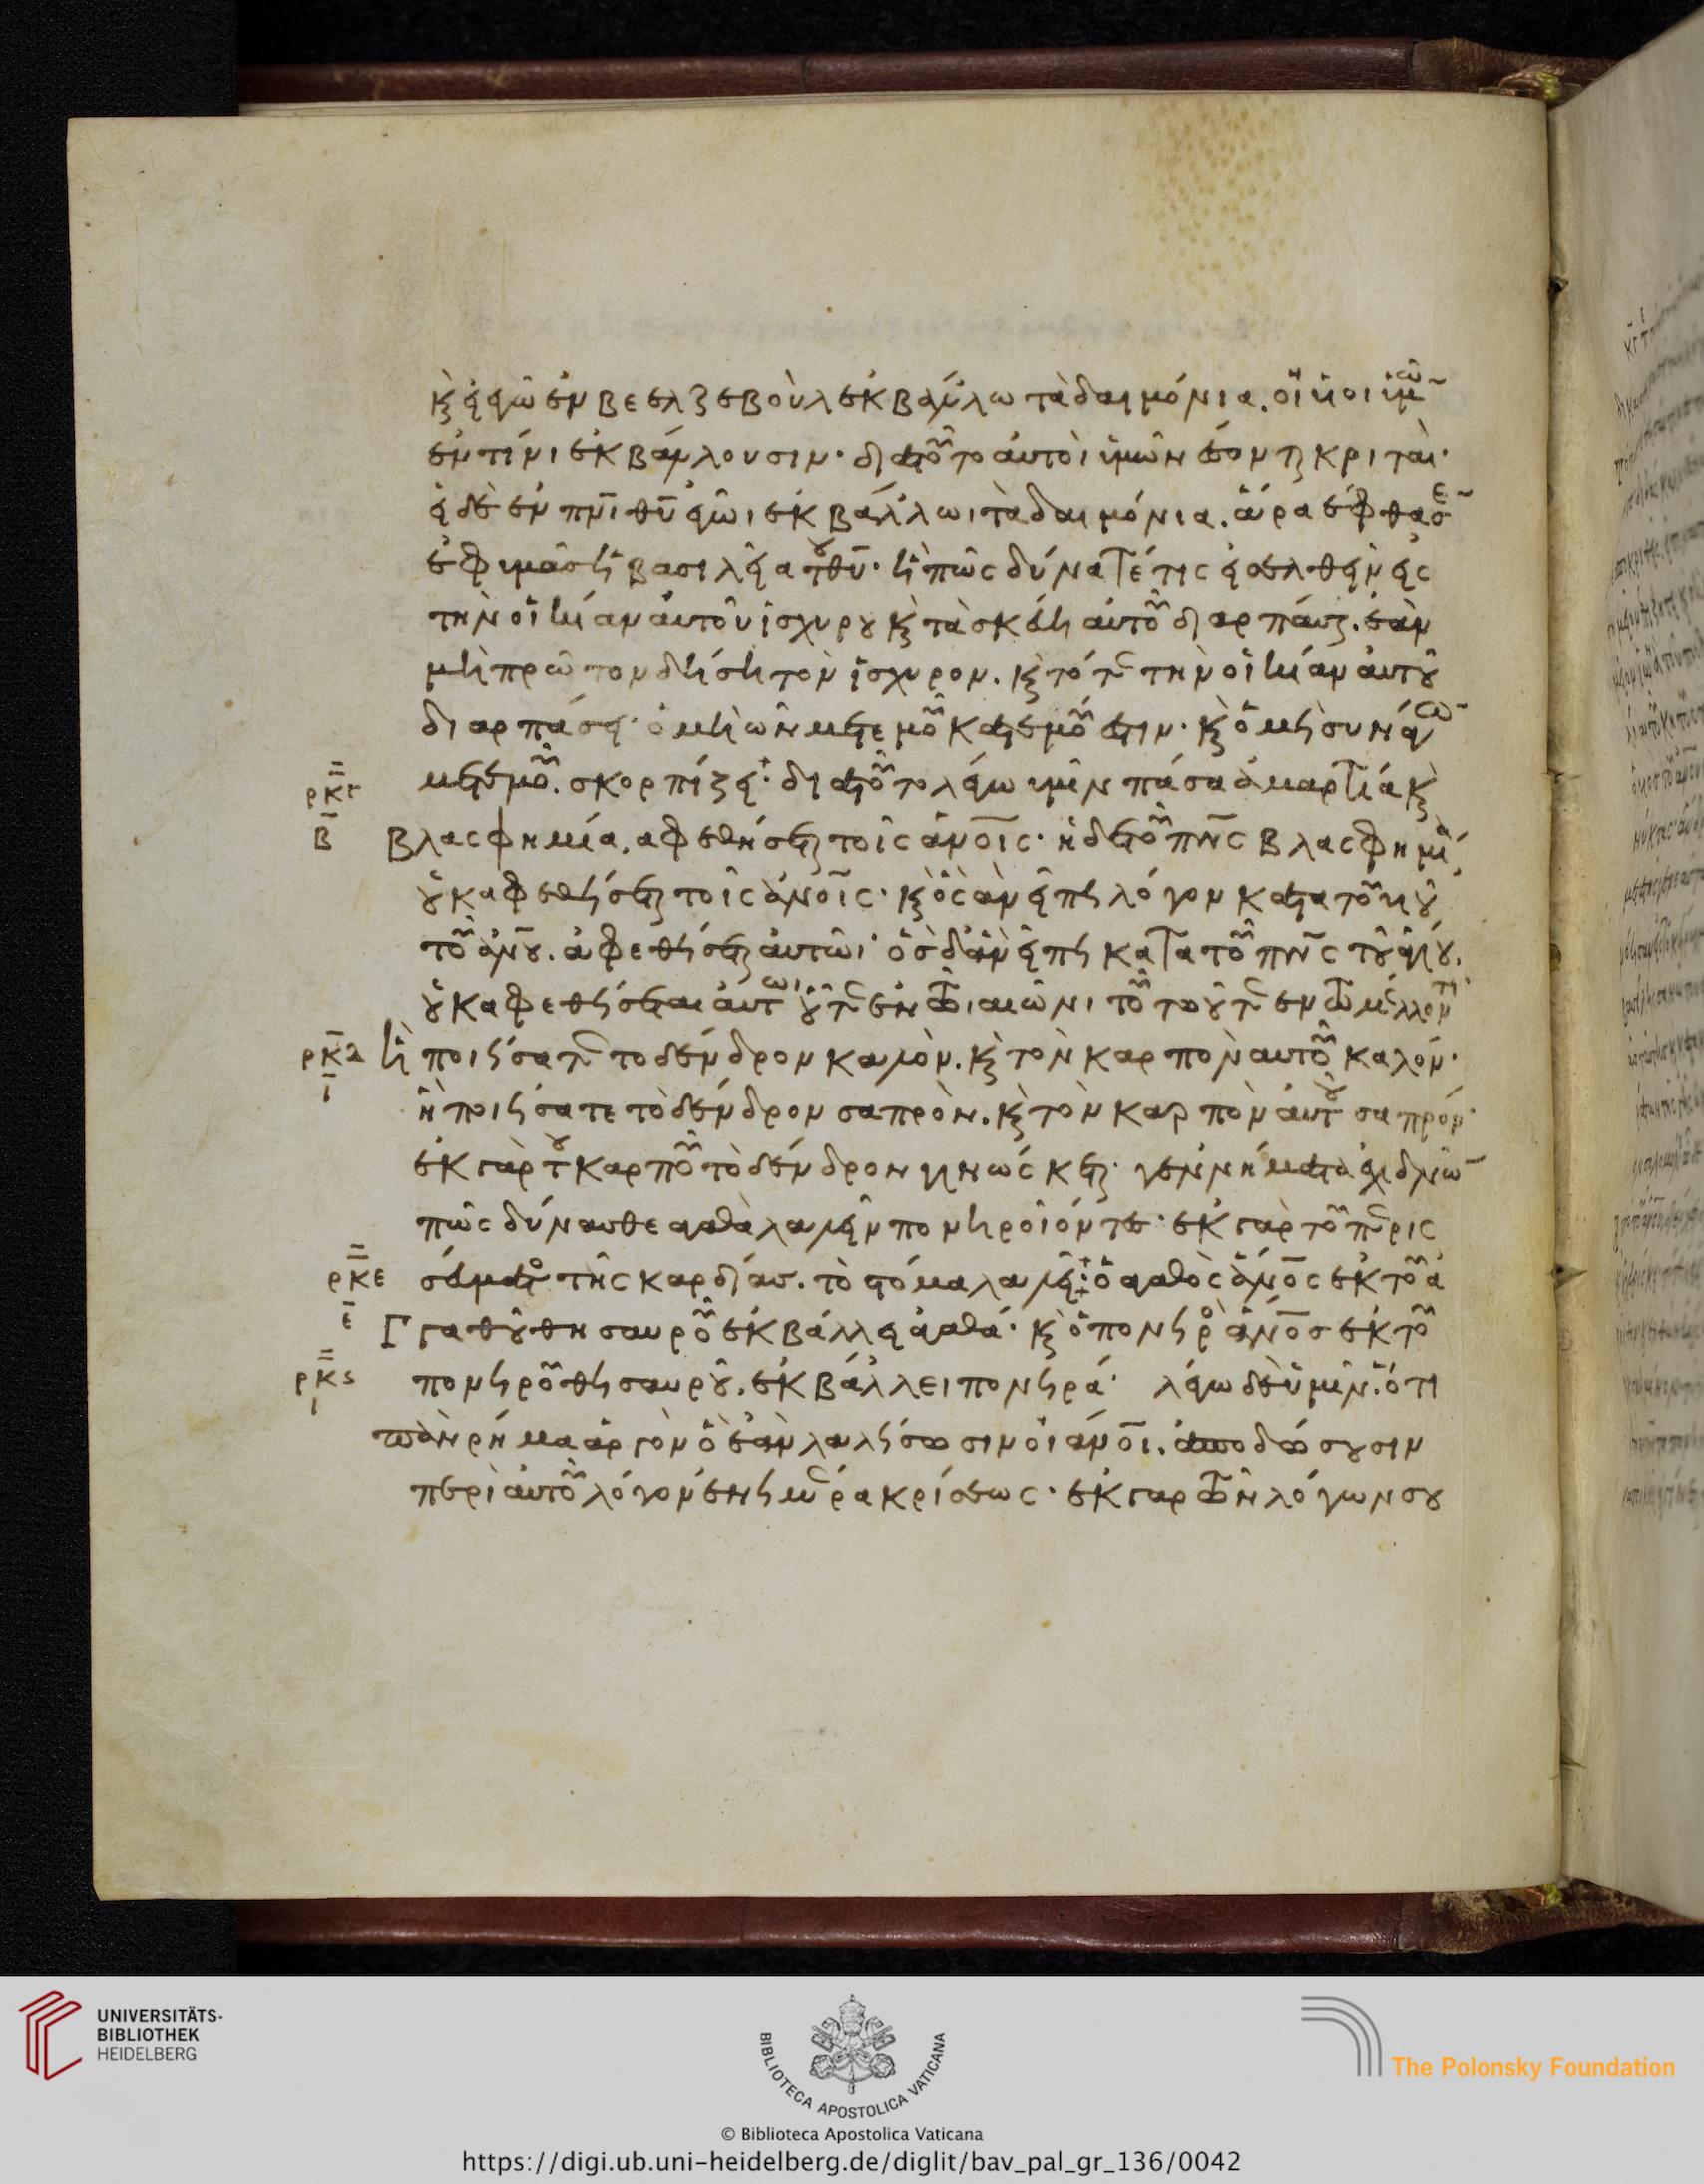 κ(αὶ) εἰ ἐγὼ ἐν βεελζεβοὺλ ἐκβάλλω τὰ δαιμόνια. οἱ υἱοὶ ὑμῶν
ἐν τίνι ἐκβάλλουσιν· διατοῦτο αὐτοὶ ὑμῶν ἔσονται κριταί·
εἰ δὲ ἐν πνι θυ ἐγὼι ἐκβάλλωι τὰ δαιμόνια. ἄρα ἔφθασεν
ἐφ ὑμᾶς ἡ βασιλεία τοῦ θυ· ἢ πῶς δύναταί τις εἰσελθεῖν εἰς
τὴν οἰκίαν αὐτοῦ ἰσχυροῦ κ(αὶ) τὰ σκεύη αὐτοῦ διαρπάσαι. ἐὰν
μὴ πρῶτον δήση τὸν ἰσχυρον. κ(αὶ) τότε τὴν οἰκίαν αὐτοῦ
διαρπάσει· ὁ μὴ ὢν μετ ἐμοῦ κατ ἐμοῦ ἐστιν· κ(αὶ) ὁ μὴ συνάγων
μετ ἐμοῦ. σκορπίζει· διατοῦτο λέγω ὑμῖν πᾶσα ἁμαρτία κ(αὶ)
ρκγ
β
βλασφημία. αφεθήσεται τοῖς ἀνοις· ἡ δὲ τοῦ πνς βλασφημία
οὐκ αφεθήσεται τοῖς ἀνοις· κ(αὶ) ὃς ἂν εἴπη λόγον κατα τοῦ υἱοῦ
τοῦ ἀνου. ἀφεθήσεται αὐτῶι· ὃς δ ἂν εἴπη κατα τοῦ πνς τοῦ ἁγίου.
οὐκ αφεθήσεται αὐτωι οὔτε ἐν τῶι αιῶνι τούτω οὔτε ἐν τῶ μέλλοντι
ρκδ
ι
ἢ ποιήσατε το δένδρον καλὸν. κ(αὶ) τὸν καρπὸν αυτοῦ καλόν·
ἢ ποιήσατε τὸ δένδρον σαπρὸν. κ(αὶ) τὸν καρπὸν αὐτοῦ σαπρόν·
ἐκ γὰρ τοῦ καρποῦ τὸ δένδρον γινώσκεται· γεννήματα ἐχιδνῶν
πῶς δύνασθε αγαθὰ λαλεῖν πονηροὶ ὄντες· ἐκ γὰρ τοῦ περις
ρκε
ε
σεύματος τῆς καρδίας. τὸ στόμα λαλεῖ· ὁ αγαθὸς ἄνος ἐκ τοῦ ἀ
γαθοῦ θησαυροῦ ἐκβάλλει ἀγαθά· κ(αὶ) ὁ πονηρὸς ἄνος ἐκ τοῦ
ρκς
ι
πονηροῦ θησαυροῦ. ἐκβάλλει πονηρά· λέγω δὲ ὑμῖν. ὅτι
πᾶν ρήμα ἀργὸν ὃ ἐὰν λαλήσωσιν οἱ ἄνοι. ἀποδώσουσιν
περὶ αὐτοῦ λόγον ἐν ἡμέρα κρίσεως· ἐκ γαρ τῶν λόγων σου
UNIVERSITÄTS-
BIBLIOTHEK
HEIDELBERG
BIBLIOTECA APOSTOLICA VATICANA
The Polonsky Foundation
© Biblioteca Apostolica Vaticana
https://digi.ub.uni-heidelberg.de/diglit/bav_pal_gr_136/0042